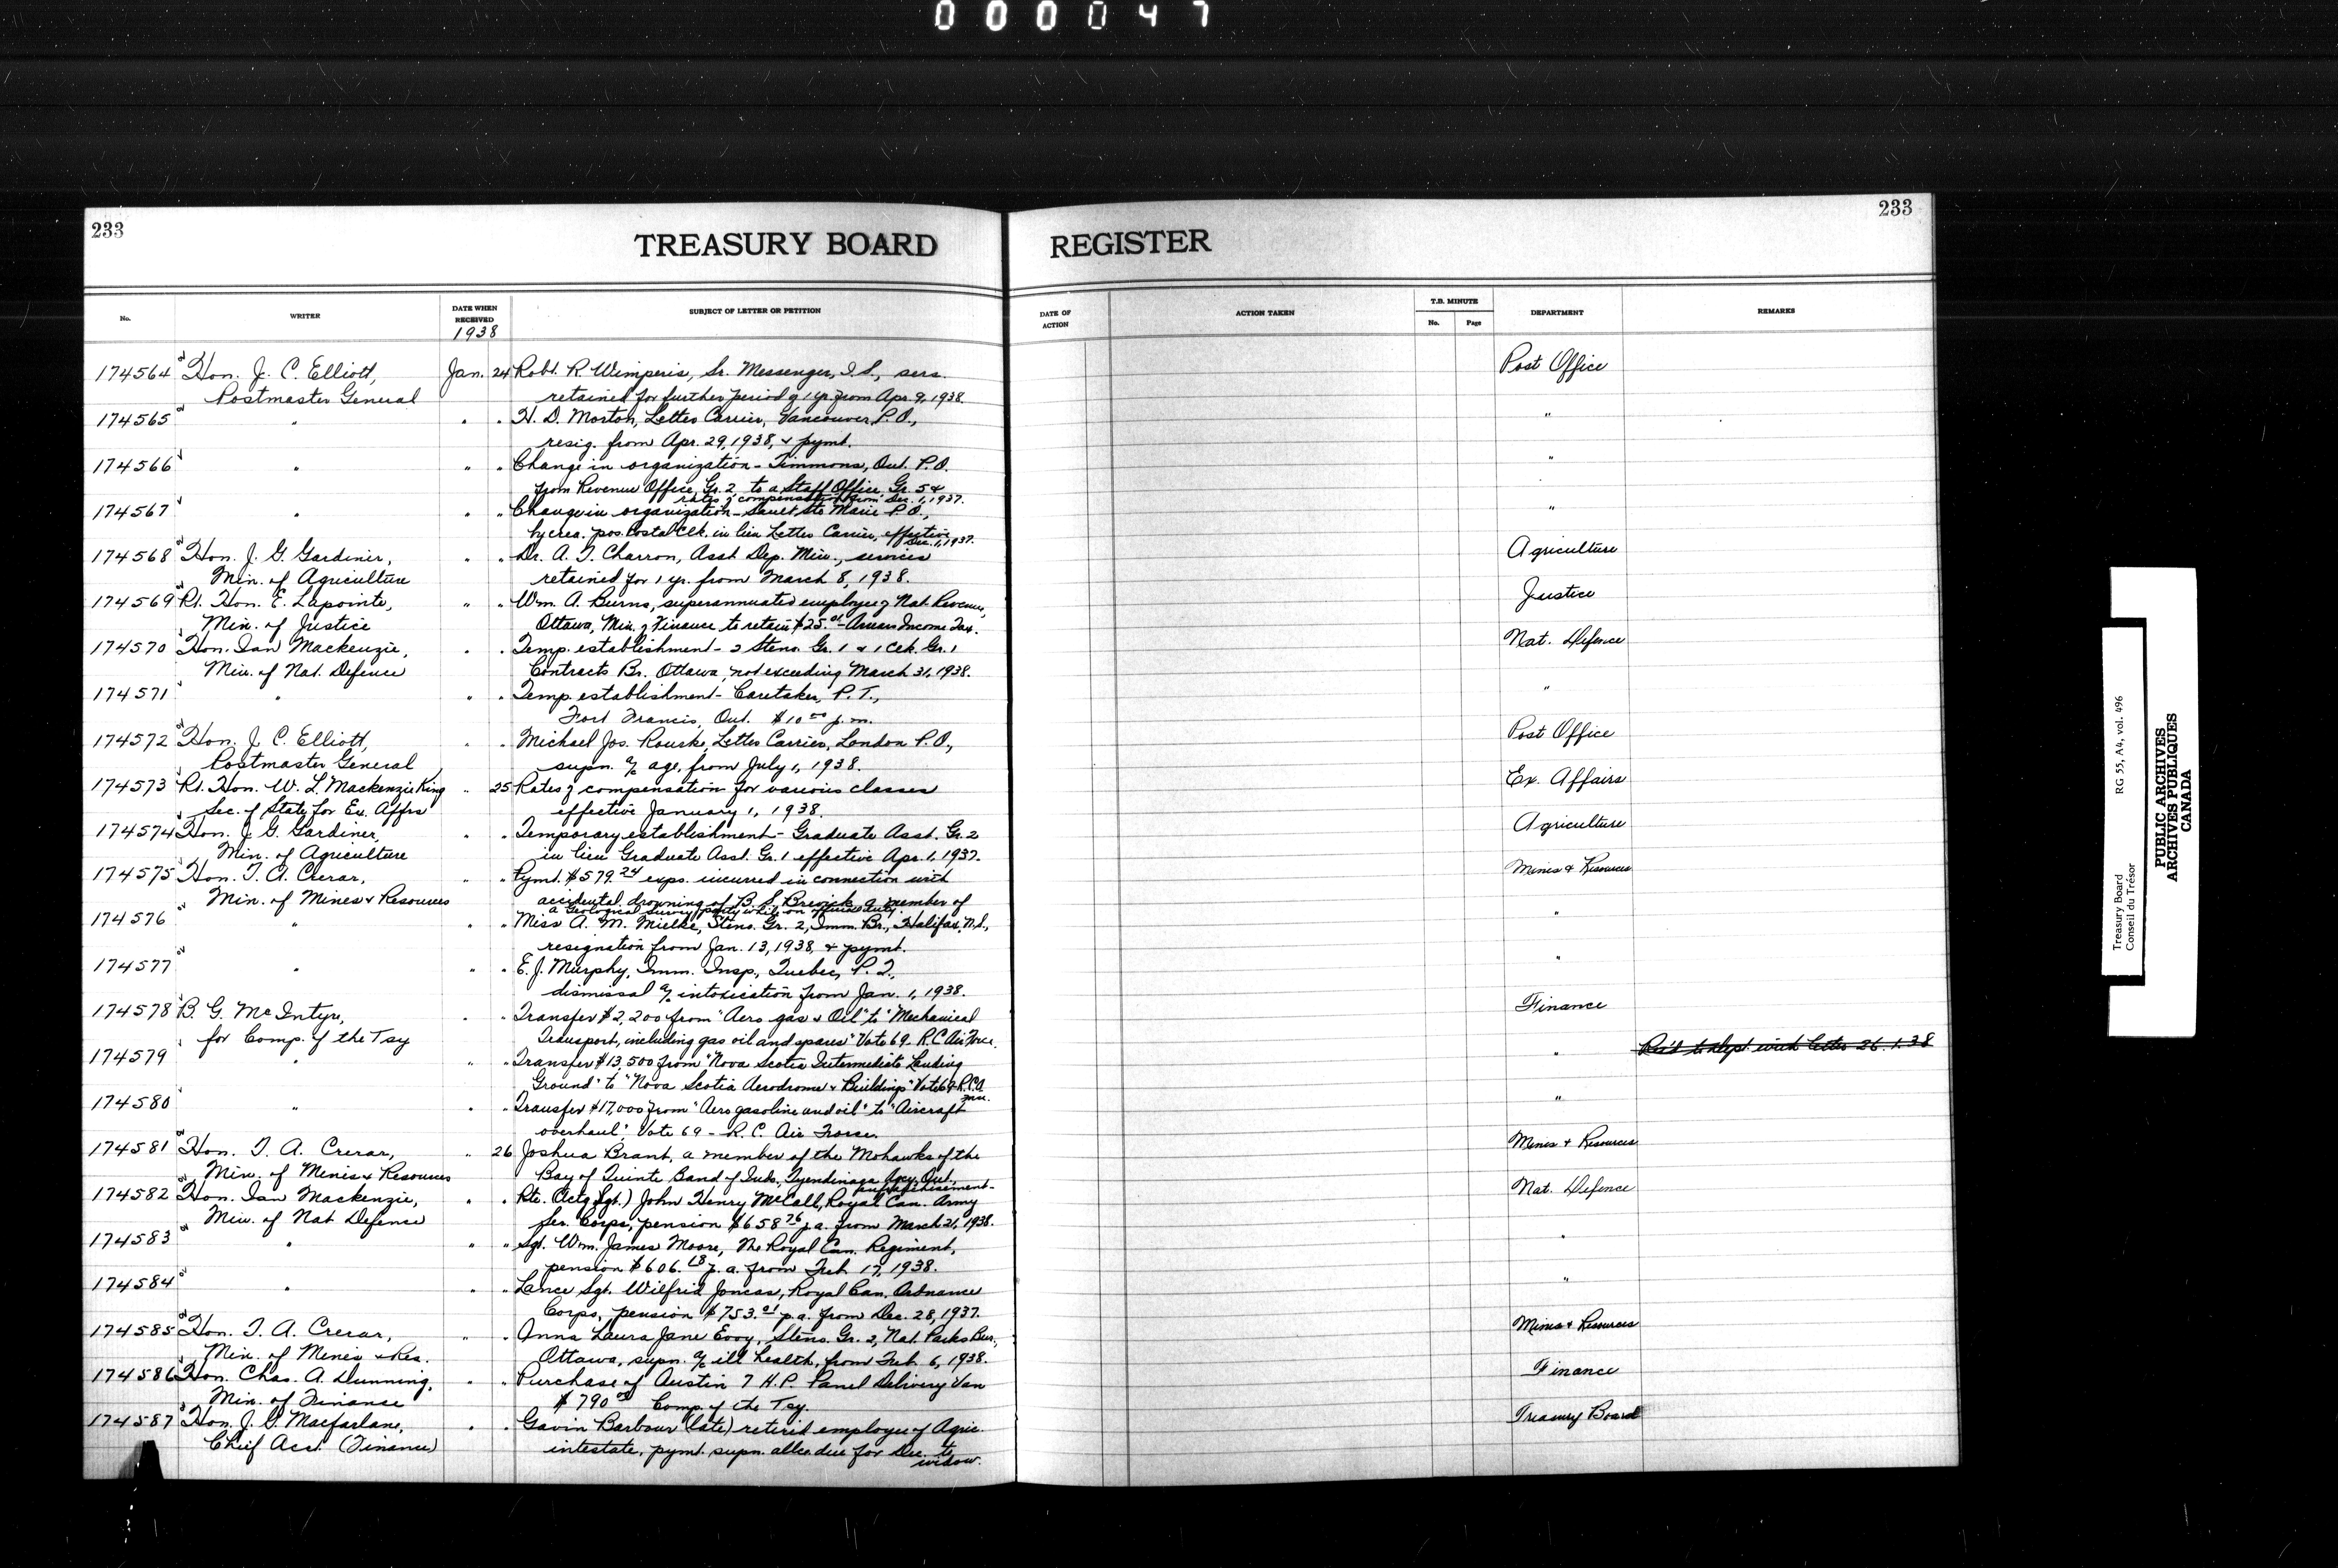 000047
233
233
TREASURY BOARD REGISTER
No.
WRITER
DATE WHEN RECEIVED
1938
SUBJECT OF LETTER OR PETITION
DATE OF ACTION
ACTION TAKEN
T.B. MINUTE
No.
Page
DEPARTMENT
REMARKS
174564 Hon. J. C. Elliott, Jan. 24 Robt. R. Wimperis, Sr. Messenger, I.S., sers. Post Office
Postmaster General retained for further period of 1 yr. from Apr. 9, 1938.
174565 " " " H. D. Morton, Letter Carrier, Vancouver P.O., "
resig. from Apr. 29, 1938, & pymt.
174566 " " " Change in organization - Timmons, Ont. P.O. "
from Revenue Office, Gr. 2 to a Staff Office, Gr. 5 &
rates of compensation from Dec. 1, 1937.
174567 " " " Change in organization - Sault Ste Marie P.O., "
by crea. pos. Postal Clk. in lieu Letter Carrier, effective
Dec. 1, 1937.
174568 Hon. J. G. Gardiner, " " Dr. A. T. Charron, Asst. Dep. Min., services Agriculture
Min. of Agriculture retained for 1 yr. from March 8, 1938.
174569 Rt. Hon. E. Lapointe, " " Wm. A. Burns, superannuated employee of Nat. Revenue, Justice
Min. of Justice Ottawa, Min. of Finance to retain $25.00 - Arrears Income Tax.
174570 Hon. Ian Mackenzie, " " Temp. establishment - 2 Steno. Gr. 1 & 1 Clk. Gr. 1 Nat. Defence
Min. of Nat. Defence Contracts Br. Ottawa, not exceeding March 31, 1938.
174571 " " " Temp. establishment - Caretaker, P.T., "
Fort Francis, Ont. $10.00 p.m.
174572 Hon. J. C. Elliott, " " Michael Jos. Rourke, Letter Carrier, London P.O., Post Office
Postmaster General supn. a/c age, from July 1, 1938.
174573 Rt. Hon. W. L. Mackenzie King " 25 Rates of compensation for various classes Ex. Affairs
Sec. of State for Ex. Affrs effective January 1, 1938.
174574 Hon. J. G. Gardiner, " " Temporary establishment - Graduate Asst. Gr. 2 Agriculture
Min. of Agriculture in lieu Graduate Asst. Gr. 1 effective Apr. 1, 1937.
174575 Hon. T. A. Crerar, " " Pymt. $579.24 exps. incurred in connection with Mines & Resources
Min. of Mines & Resources accidental drowning of B. S. Brewick, a member of
a Geological Survey party while on official duty.
174576 " " " Miss A. M. Mielke, Steno. Gr. 2, Imm. Br., Halifax, N.S., "
resignation from Jan. 13, 1938 & pymt.
174577 " " " E. J. Murphy, Imm. Insp., Quebec, P.Q., "
dismissal a/c intoxication from Jan. 1, 1938.
174578 B. G. McIntyre, " " Transfer $2,200 from "Aero gas & Oil" to "Mechanical Finance
for Comp. of the Tsy Transport, including gas oil and spares" Vote 69 R.C. Air Force.
174579 " " " Transfer $13,500 from "Nova Scotia Intermediate Landing " Ret'd to Dept. with letter 26.1.38
Ground" to "Nova Scotia Aerodrome & Buildings" Vote 69 R.C.A.
174580 " " " Transfer $17,000 from "Aero gasoline and oil" to "Aircraft "
overhaul". Vote 69 - R.C. Air Force.
174581 Hon. T. A. Crerar, " 26 Joshua Brant, a member of the Mohawks of the Mines & Resources
Min. of Mines & Resources Bay of Quinte Band of Inds., Tyendinaga Agcy, Ont.,
enfranchisement -
174582 Hon. Ian Mackenzie, " " Pte. (Actg. Sgt.) John Henry McCall, Royal Can. Army Nat. Defence
Min. of Nat Defence Ser. Corps, pension $658.76 p.a. from March 21, 1938.
174583 " " " Sgt. Wm. James Moore, The Royal Can. Regiment, "
pension $606.68 p.a. from Feb. 17, 1938.
174584 " " " Lance Sgt. Wilfrid Joncas, Royal Can. Ordnance "
Corps, pension $753.01 p.a. from Dec. 28, 1937.
174585 Hon. T. A. Crerar, " " Anna Laura Jane Evoy, Steno. Gr. 2, Nat. Parks Bur., Mines & Resources
Min. of Mines & Res. Ottawa, supn. a/c ill health, from Feb. 6, 1938.
174586 Hon. Chas. A. Dunning, " " Purchase of Austin 7 H.P. Panel Delivery Van Finance
Min. of Finance $790.00 Comp. of the Tsy.
174587 Hon. J. G. Macfarlane, " " Gavin Barbour (late) retired employee of Agric. Treasury Board
Chief Acct. (Finance) intestate, pymt. supn. allce. due for Dec. to
widow.
Treasury Board RG 55, A4, vol. 496
Conseil du Trésor
PUBLIC ARCHIVES
ARCHIVES PUBLIQUES
CANADA